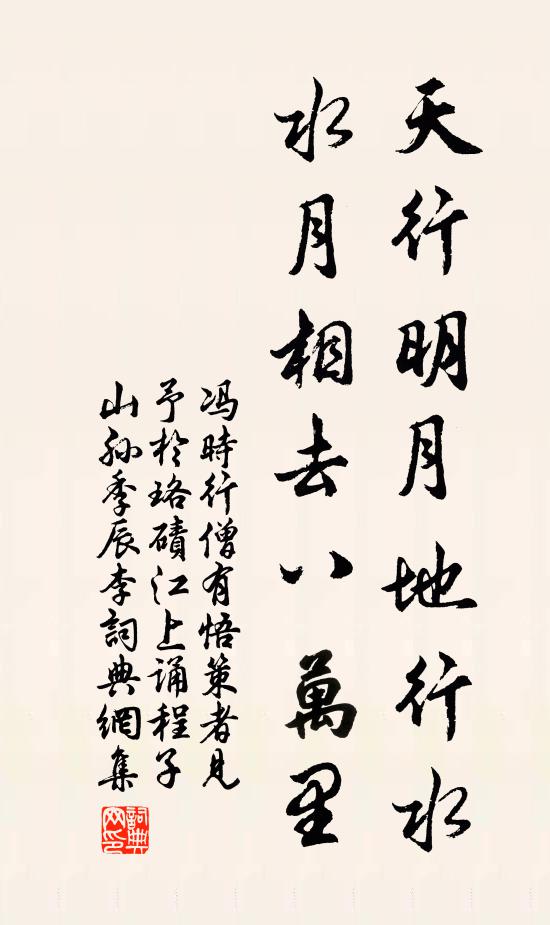 天行明月地行水
水月相去八萬里
冯時行僧有悟策者見
予於珞磧江上誦程子
山孙季辰李詞典網集
詞典网印